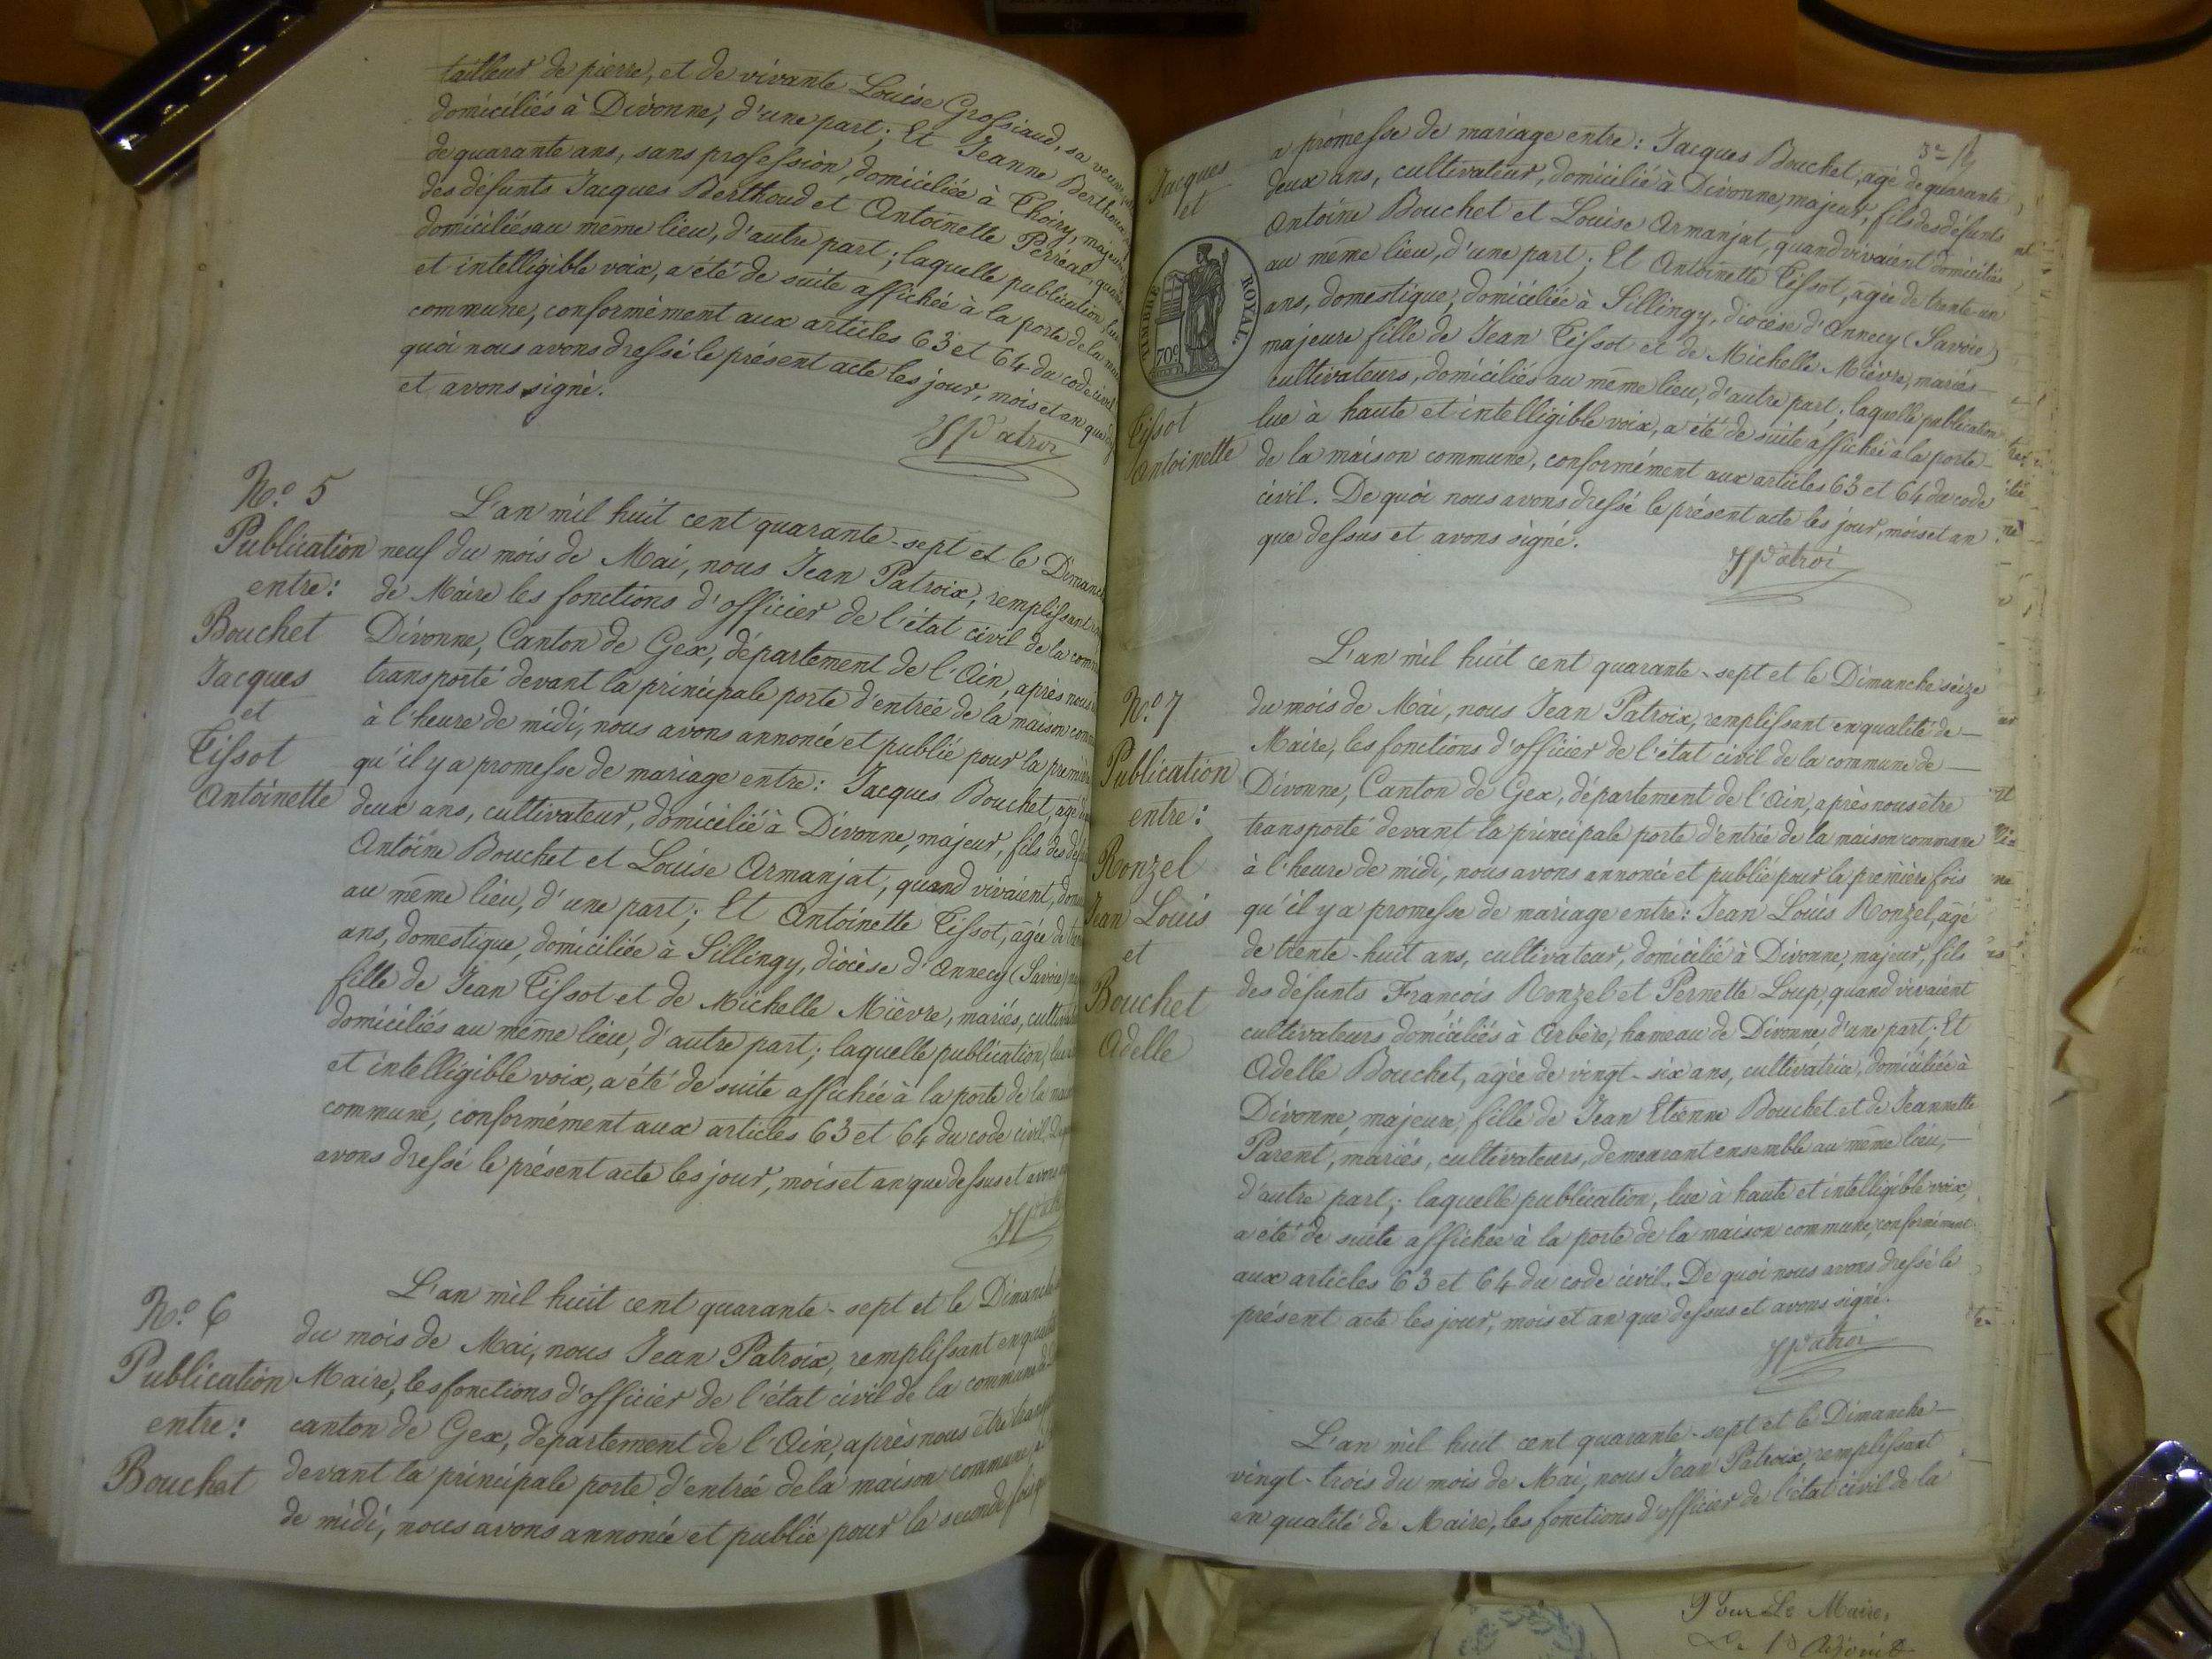 tailleur de pierre, et de vivante Louise Grossiaud, sa veuve
domiciliés à Divonne, d'une part; Et Jeanne Berthoud
de quarante ans, sans profession, domiciliée à Thoiry, majeure
des défunts Jacques Berthoud et Antoinette Perréal, quand
domiciliés au même lieu, d'autre part; laquelle publication, lue
et intelligible voix, a été de suite affichée à la porte de la
commune, conformément aux articles 63 et 64 du code civil
quoi nous avons dressé le présent acte les jour, mois et an que
et avons signé.
JPatroi
N.º 5
Publication
entre:
Bouchet
Jacques
et
Tissot
Antoinette
L'an mil huit cent quarante-sept et le Dimanche
neuf du mois de Mai, nous Jean Patroix, remplissant
de Maire les fonctions d'officier de l'état civil de la
Divonne, Canton de Gex, département de l'Ain, après nous
transporté devant la principale porte d'entrée de la maison
à l'heure de midi, nous avons annoncé et publié pour la première
qu'il y a promesse de mariage entre: Jacques Bouchet, agé
deux ans, cultivateur, domicilié à Divonne, majeur, fils des
Antoine Bouchet et Louise Armanjat, quand vivaient,
au même lieu, d'une part; Et Antoinette Tissot, agée de
ans, domestique, domiciliée à Sillingy, diocèse d'Annecy (Savoie)
fille de Jean Tissot et de Michelle Mièvre, mariés,
domiciliés au même lieu, d'autre part; laquelle publication,
et intelligible voix, a été de suite affichée à la porte de la
commune, conformément aux articles 63 et 64 du code civil.
avons dressé le présent acte les jour, mois et an que dessus et avons
N.º 6
Publication
entre:
Bouchet
L'an mil huit cent quarante-sept et le Dimanche
du mois de Mai, nous Jean Patroix, remplissant en
Maire, les fonctions d'officier de l'état civil de la commune de
canton de Gex, département de l'Ain, après nous être
devant la principale porte d'entrée de la maison commune,
de midi, nous avons annoncé et publié pour la seconde fois
3e
Jacques
et
TIMBRE ROYAL
70c
Tissot
Antoinette
a promesse de mariage entre: Jacques Bouchet, agé de quarante
deux ans, cultivateur, domicilié à Divonne, majeur, fils des défunts
Antoine Bouchet et Louise Armanjat, quand vivaient domiciliés
au même lieu, d'une part; Et Antoinette Tissot, agée de trente-un
ans, domestique, domiciliée à Sillingy, diocèse d'Annecy (Savoie)
majeure fille de Jean Tissot et de Michelle Mièvre, mariés
cultivateurs, domiciliés au même lieu, d'autre part; laquelle publication
lue à haute et intelligible voix, a été de suite affichée à la porte
de la maison commune, conformément aux articles 63 et 64 du code
civil. De quoi nous avons dressé le présent acte les jour, mois et an
que dessus et avons signé.
JPatroi
N.º 7
Publication
entre:
Ronzel
Jean Louis
et
Bouchet
Adelle
L'an mil huit cent quarante-sept et le Dimanche seize
du mois de Mai, nous Jean Patroix, remplissant en qualité de
Maire, les fonctions d'officier de l'état civil de la commune de
Divonne, Canton de Gex, département de l'Ain, après nous être
transporté devant la principale porte d'entrée de la maison commune
à l'heure de midi, nous avons annoncé et publié pour la première fois
qu'il y a promesse de mariage entre: Jean Louis Ronzel, agé
de trente-huit ans, cultivateur, domicilié à Divonne, majeur, fils
des défunts François Ronzel et Pernette Loup, quand vivaient
cultivateurs domiciliés à Arbère, hameau de Divonne, d'une part; Et
Adelle Bouchet, agée de vingt-six ans, cultivatrice, domiciliée à
Divonne, majeure, fille de Jean Etienne Bouchet et de Jeannette
Parent, mariés, cultivateurs, demeurant ensemble au même lieu,
d'autre part; laquelle publication, lue à haute et intelligible voix,
a été de suite affichée à la porte de la maison commune, conformément
aux articles 63 et 64 du code civil. De quoi nous avons dressé le
présent acte les jour, mois et an que dessus et avons signé.
JPatroi
L'an mil huit cent quarante-sept et le Dimanche
vingt-trois du mois de Mai, nous Jean Patroix, remplissant
en qualité de Maire, les fonctions d'officier de l'état civil de la
Pour Le Maire,